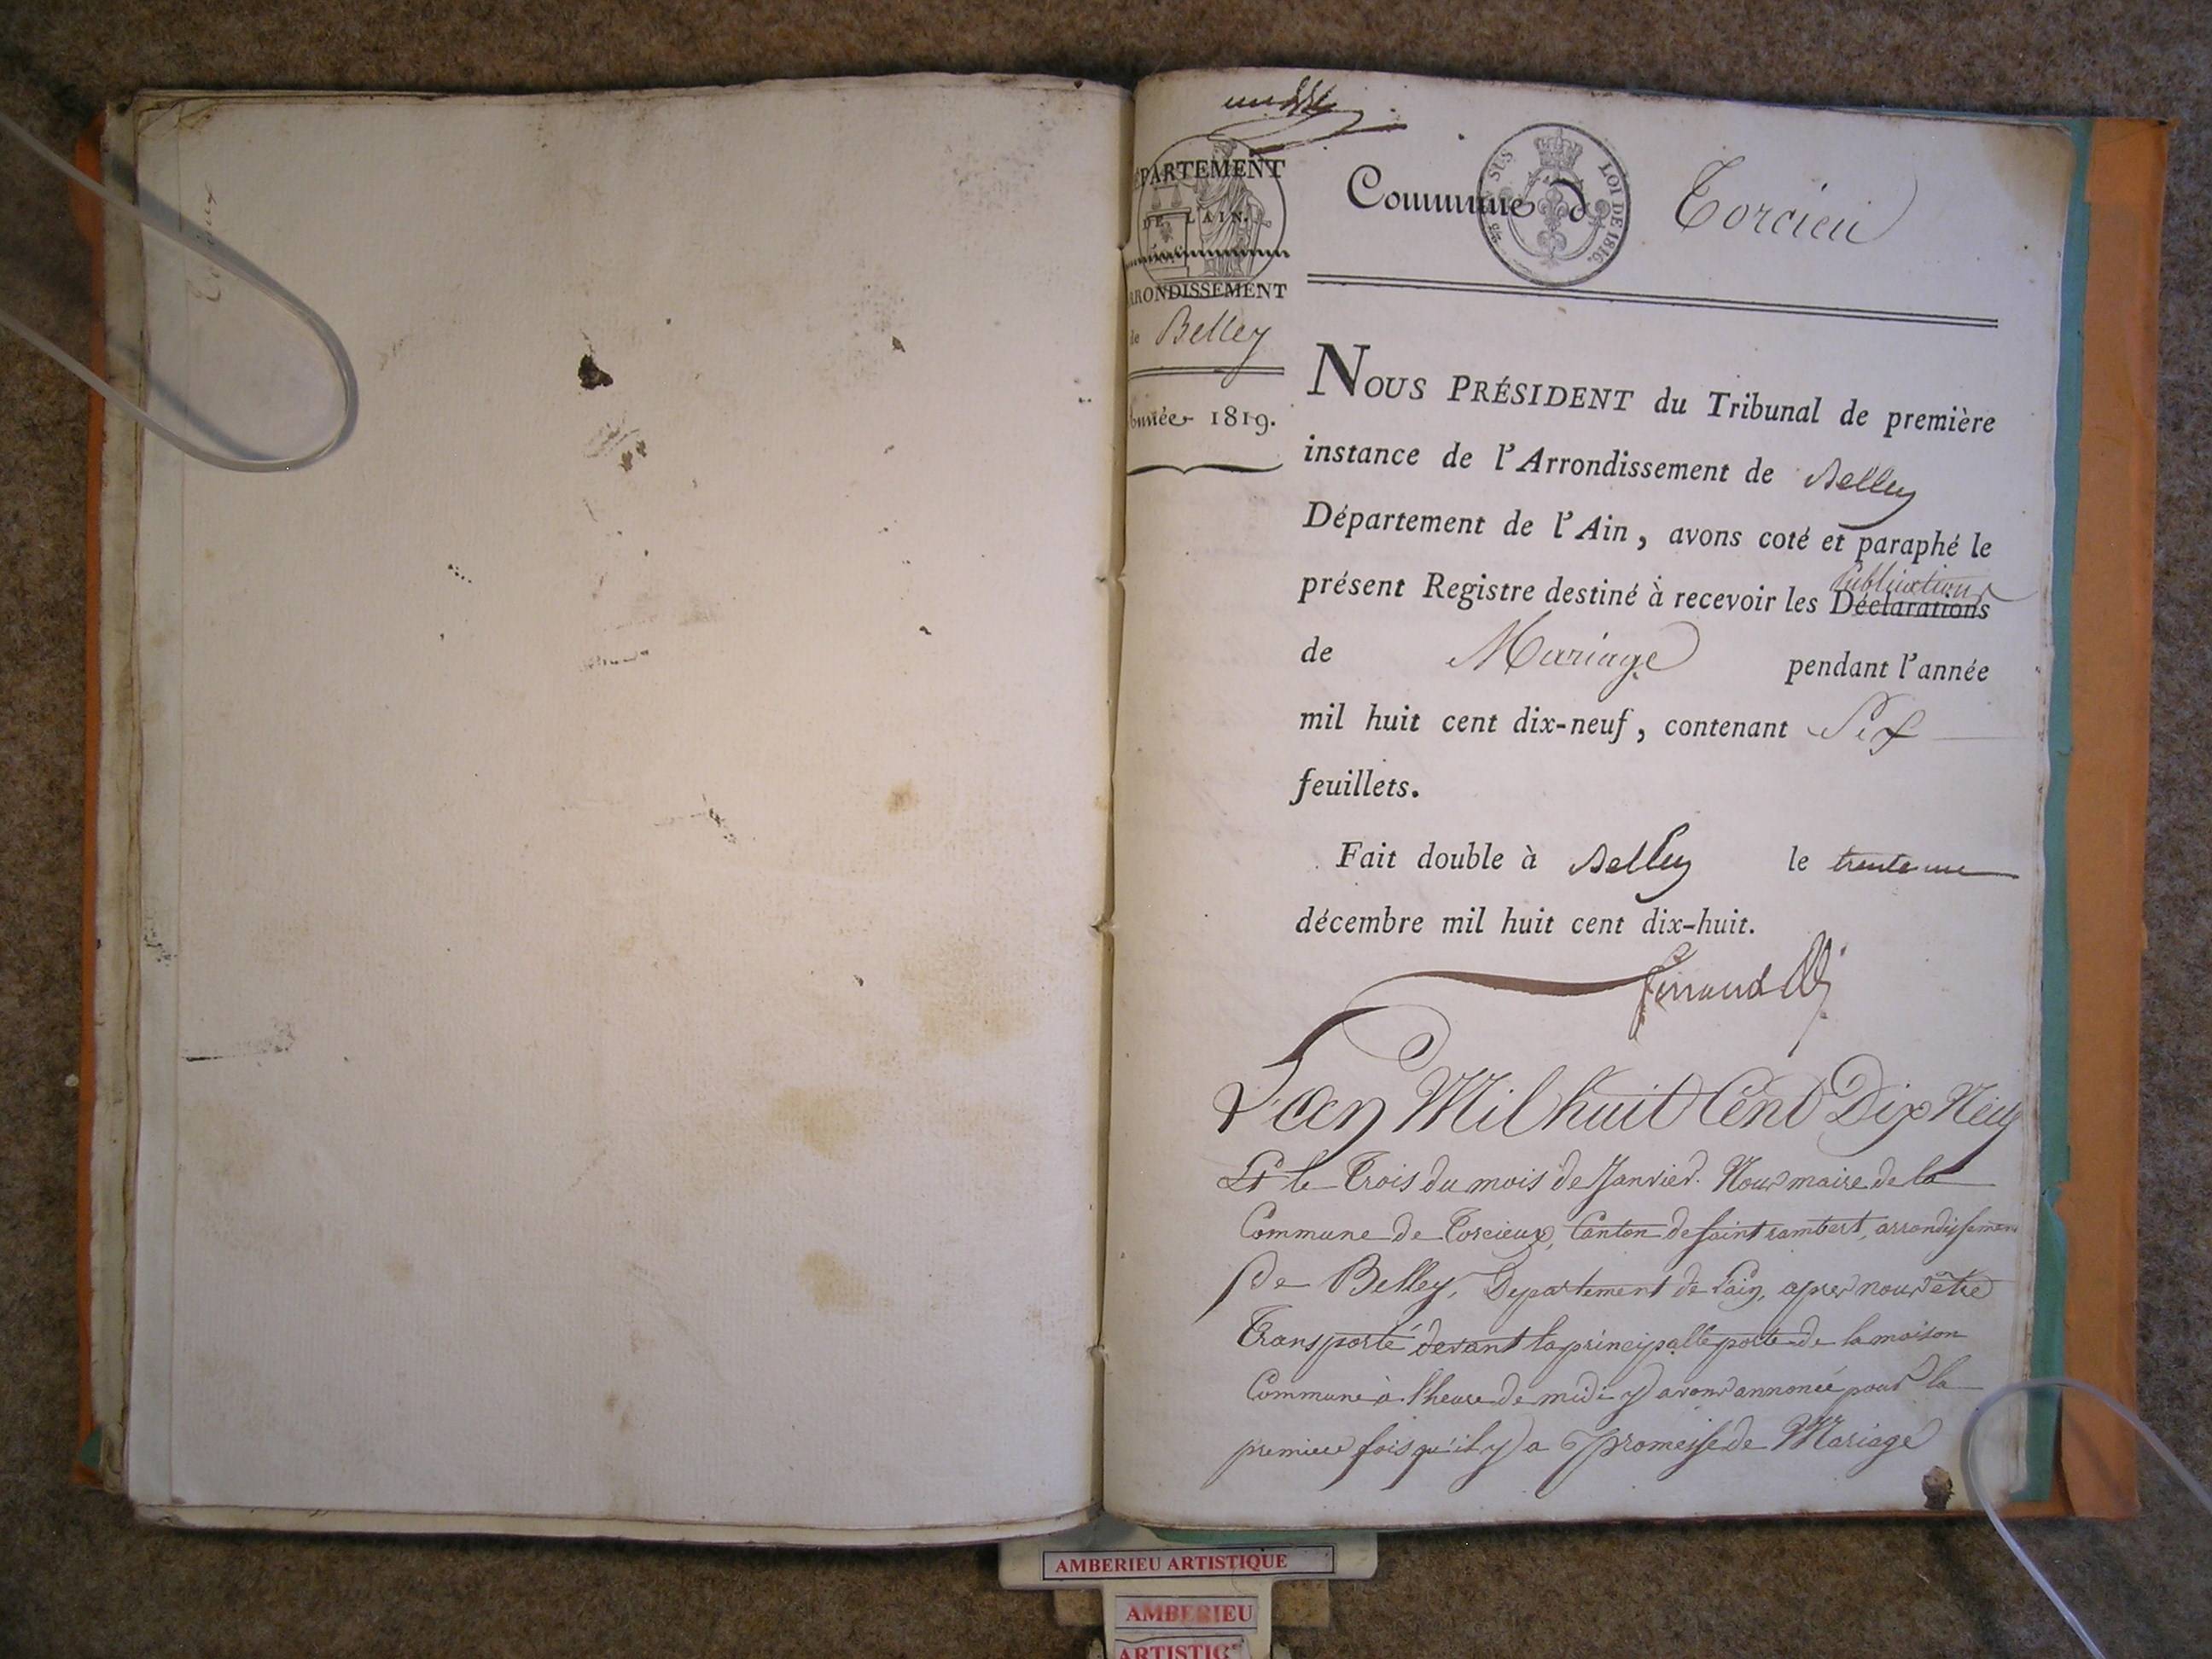 DÉPARTEMENT
DE L'AIN.
ARRONDISSEMENT
de Belley
Année 1819.
Commune d Torcieu
SUS LOI DE 1816.
NOUS PRÉSIDENT du Tribunal de première
instance de l'Arrondissement de Belley
Département de l'Ain, avons coté et paraphé le
Publications
présent Registre destiné à recevoir les Déclarations
de Mariage pendant l'année
mil huit cent dix-neuf, contenant Six
feuillets.
Fait double à Belley le trente un
décembre mil huit cent dix-huit.
L'an Mil huit Cent Dix Neuf
Et le Trois du mois de Janvier. Nous maire de la
Commune de Torcieux, Canton de saint rambert, arrondissement
De Belley, Departement de l'ain, apres nous être
Transporté devant la principalle porte de la maison
Commune à l'heure de midi y avons annoncé pour la
premiere fois qu'il y a promesse de Mariage
AMBERIEU ARTISTIQUE
AMBERIEU
ARTISTIC